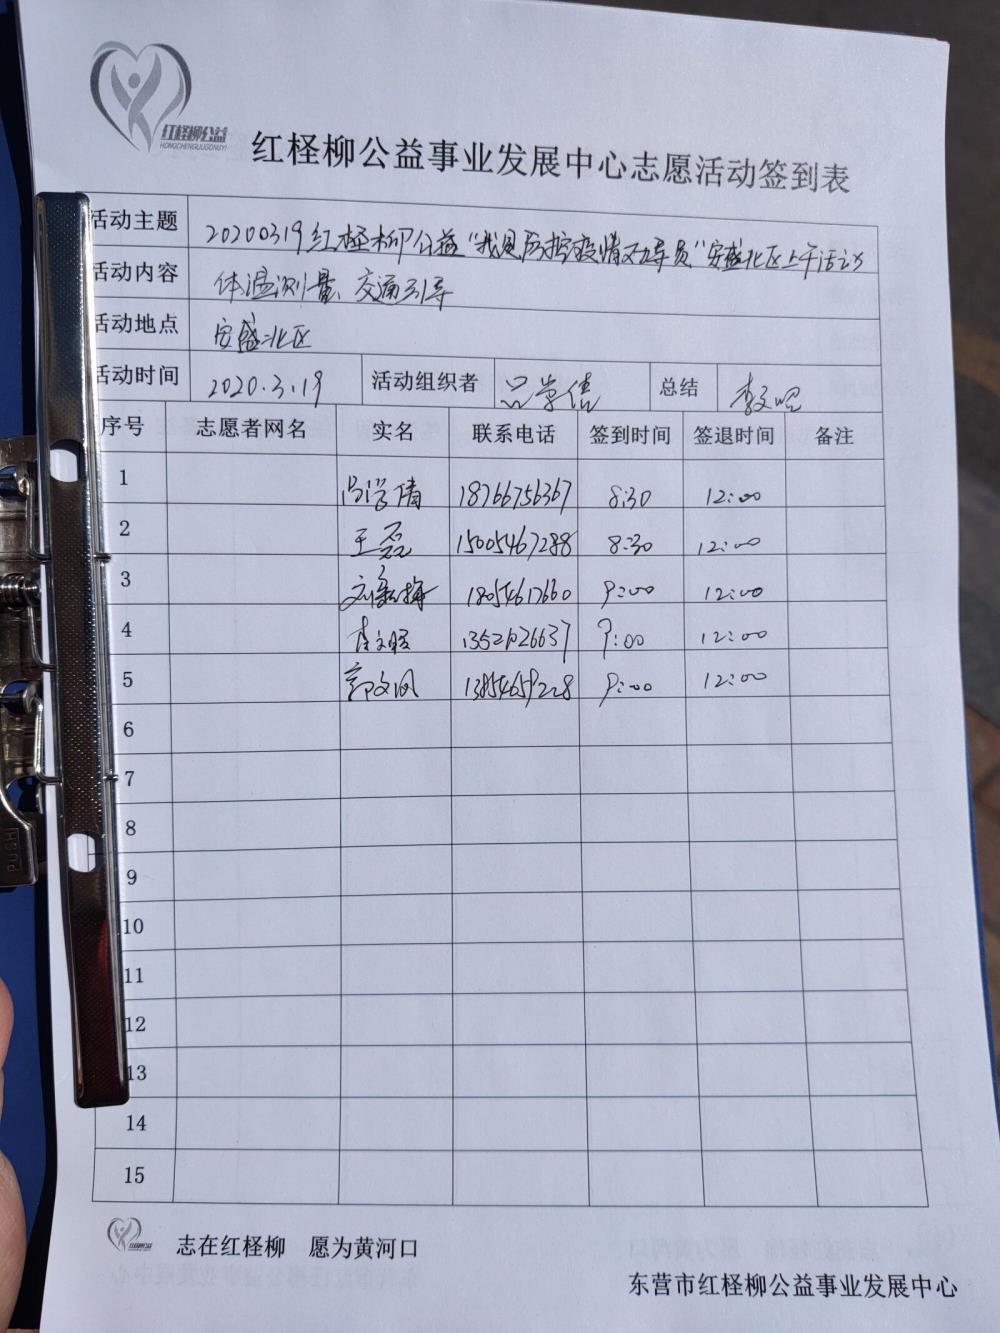 红柽柳公益
HONGCHENGLIUGONGYI
红柽柳公益事业发展中心志愿活动签到表
活动主题 20200319红柽柳公益“我是防控疫情劝导员”安盛北区上午活动
活动内容 体温测量、交通引导
活动地点 安盛北区
活动时间 2020.3.19 活动组织者 吕学倩 总结 李文昭
序号 志愿者网名 实名 联系电话 签到时间 签退时间 备注
1 吕学倩 18766756367 8:30 12:00
2 王磊 15005467288 8:30 12:00
3 刘 梅 18054617660 9:00 12:00
4 李文昭 9:00 12:00
5 郭文凤 13854659228 9:00 12:00
6
7
8
9
10
11
12
13
14
15
PUSH
红柽柳公益
志在红柽柳 愿为黄河口
东营市红柽柳公益事业发展中心